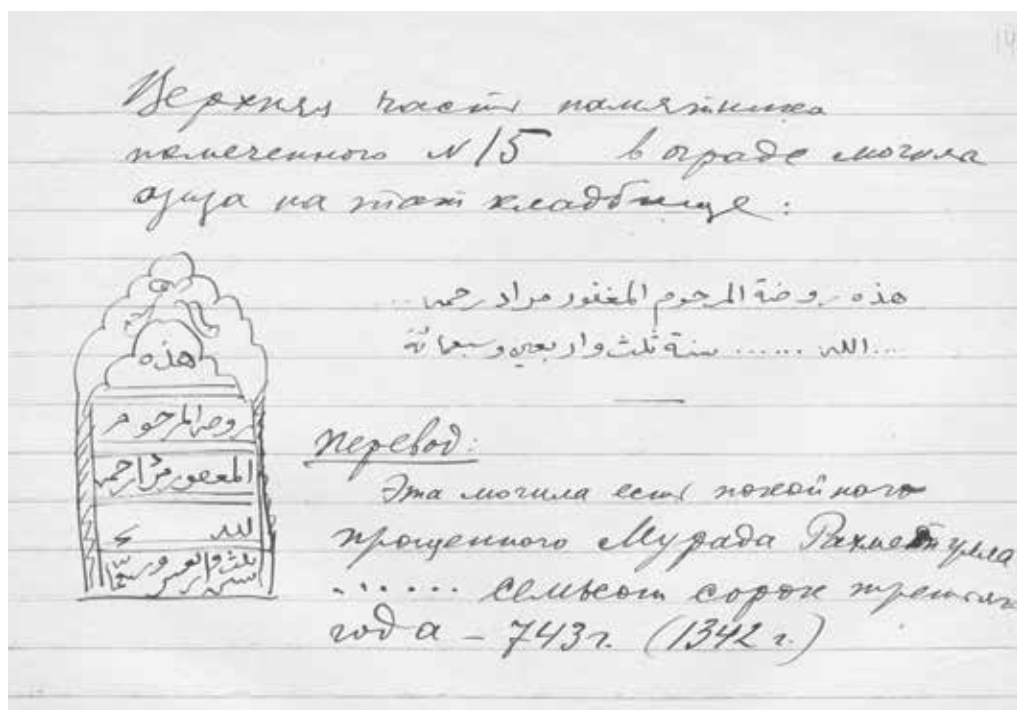 Верхняя часть памятника
помеченного N 15 в ограде могила
азиза на том кладбище:
هذه روضة المرحوم المغفور مراد رحمه ..
... الله ...... سنة ثلث واربعين وسبعمائة
هذه
روضه المرحوم
المغفور مراد رحمه
لله
سنه ثلث واربعين وسبعمائة
Перевод:
Эта могила есть покойного
прощенного Мурада
...... семьсот сорок третьяго
года – 743 г. (1342 г.)